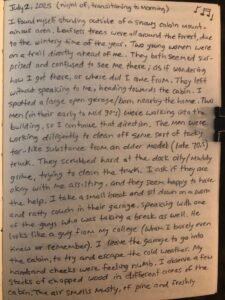 July 2, 2025 (night of, transitioning to morning)
I found myself standing outside of a snowy cabin mount-
ainous area. Leafless trees were all around the forest, due
to the wintery time of the year. Two young women were
on a trail directly ahead of me. They both seemed sur-
prised and confused to see me there; as if wondering
how I got there, or where did I came from. They left
without speaking to me, heading towards the cabin. I
spotted a large open garage/barn nearby the home. Two
men (in their early to mid 30's) were walking into the
building, so I continue that direction. The men were
working diligently to clean off some sort of tacky
tar-like substance from an older model (late 70's)
truck. They scrubbed hard at the dark oily/muddy
grime, trying to clean the truck. I ask if they are
okay with me assisting, and they seem happy to have
the help. I take a small break and sit down on a warn
and ratty couch in their garage. Speaking with one
of the guys who was taking a break as well. He
looks like a guy from my college (whom I barely even
knew or remember). I leave the garage to go into
the cabin, to try and escape the cold weather. My
hands and cheeks were feeling numb. I observe a few
stacks of chopped wood in different areas of the
cabin. The air smells musty, of pine and freshly